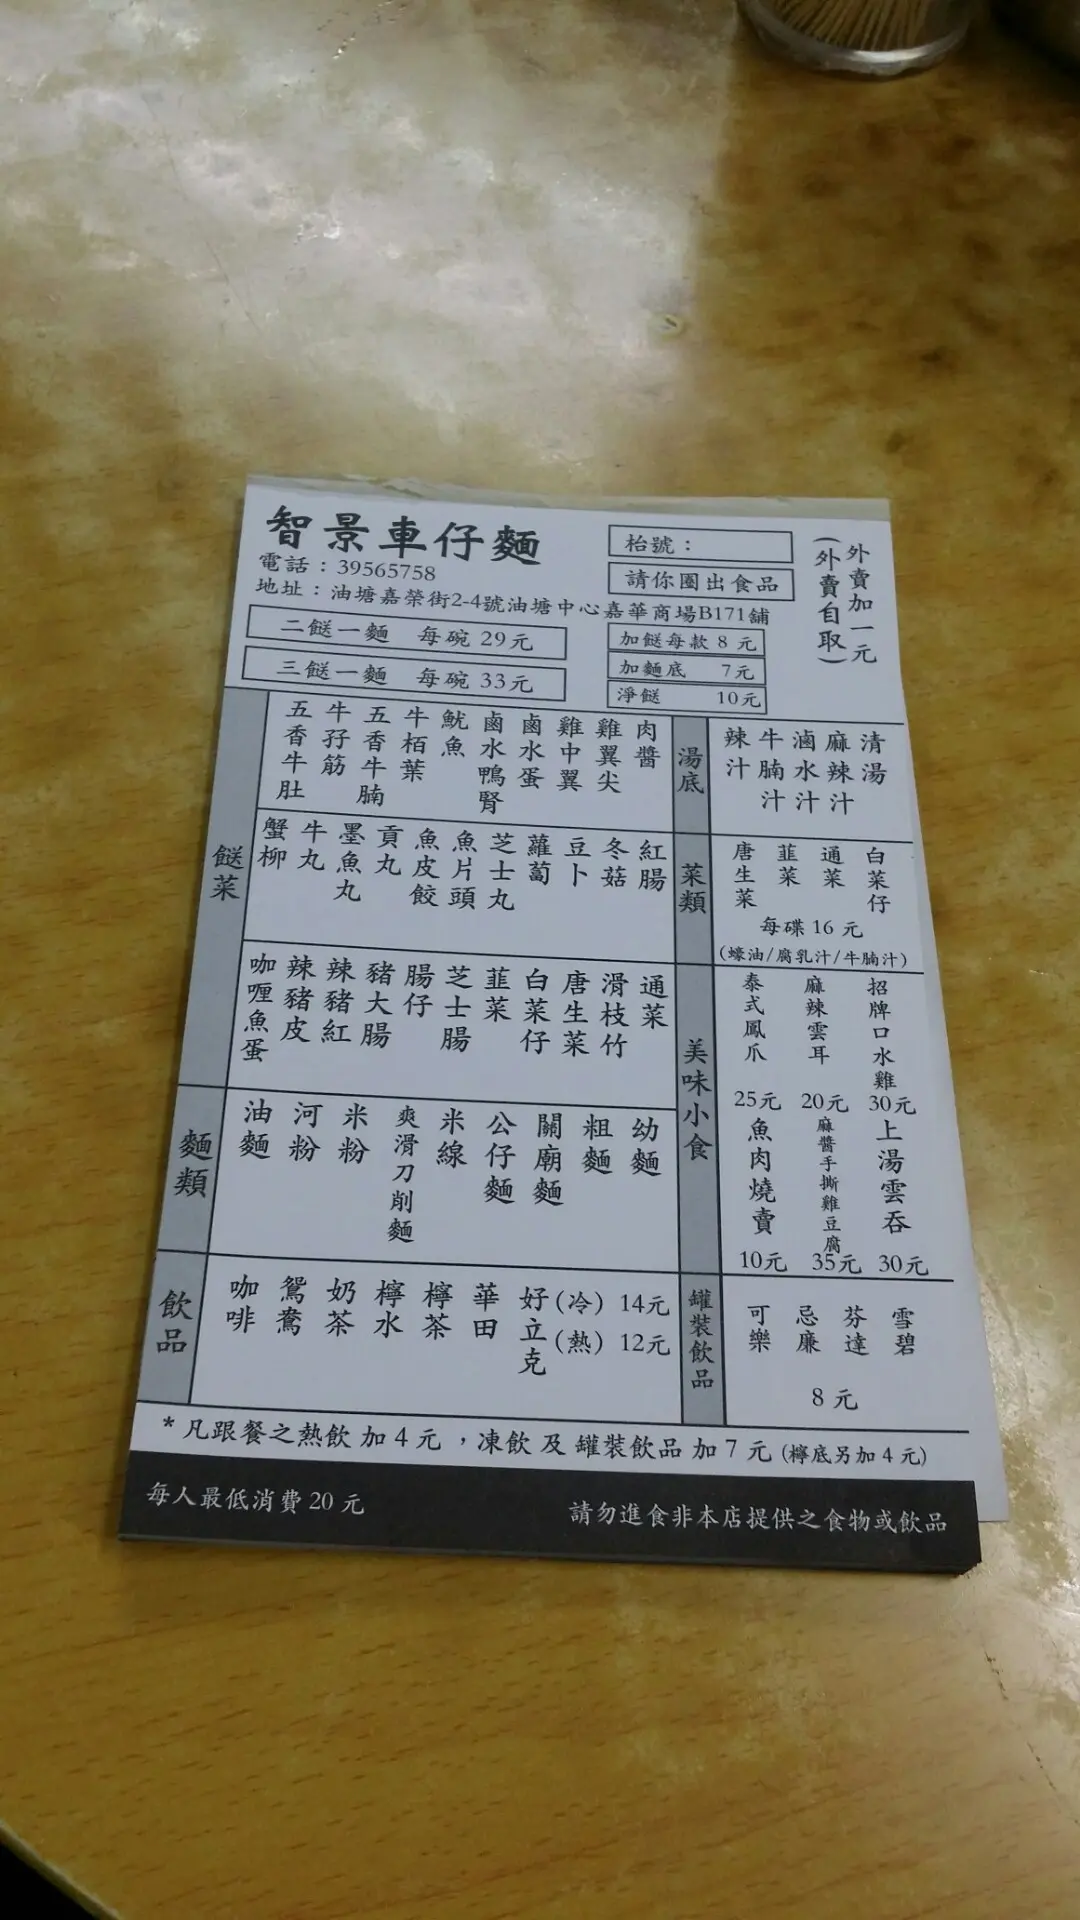 智景車仔麵
電話：39565758
地址：油塘嘉榮街2-4號油塘中心嘉華商場B171舖
枱號：
請你圈出食品
外賣加一元
(外賣自取)
二餸一麵 每碗 29元
三餸一麵 每碗 33元
加餸每款 8 元
加麵底 7元
淨餸 10元
餸菜
五香牛肚
牛孖筋
五香牛腩
牛栢葉
魷魚
鹵水鴨腎
鹵水蛋
雞中翼
雞翼尖
肉醬
蟹柳
牛丸
墨魚丸
貢丸
魚皮餃
魚片頭
芝士丸
蘿蔔
豆卜
冬菇
紅腸
咖喱魚蛋
辣豬皮
辣豬紅
豬大腸
腸仔
芝士腸
韮菜
白菜仔
唐生菜
滑枝竹
通菜
麵類
油麵
河粉
米粉
爽滑刀削麵
米線
公仔麵
關廟麵
粗麵
幼麵
飲品
咖啡
鴛鴦
奶茶
檸水
檸茶
華田
好立克
(冷) 14元
(熱) 12元
湯底
辣汁
牛腩汁
滷水汁
麻辣汁
清湯
菜類
唐生菜
韮菜
通菜
白菜仔
每碟 16 元
(蠔油/腐乳汁/牛腩汁)
美味小食
泰式鳳爪
麻辣雲耳
招牌口水雞
25元 20元 30元
魚肉燒賣
麻醬手撕雞豆腐
上湯雲吞
10元 35元 30元
罐裝飲品
可樂
忌廉
芬達
雪碧
8 元
* 凡跟餐之熱飲 加 4 元 ，凍飲 及 罐裝飲品 加 7 元 (檸底另加 4 元)
每人最低消費 20 元
請勿進食非本店提供之食物或飲品